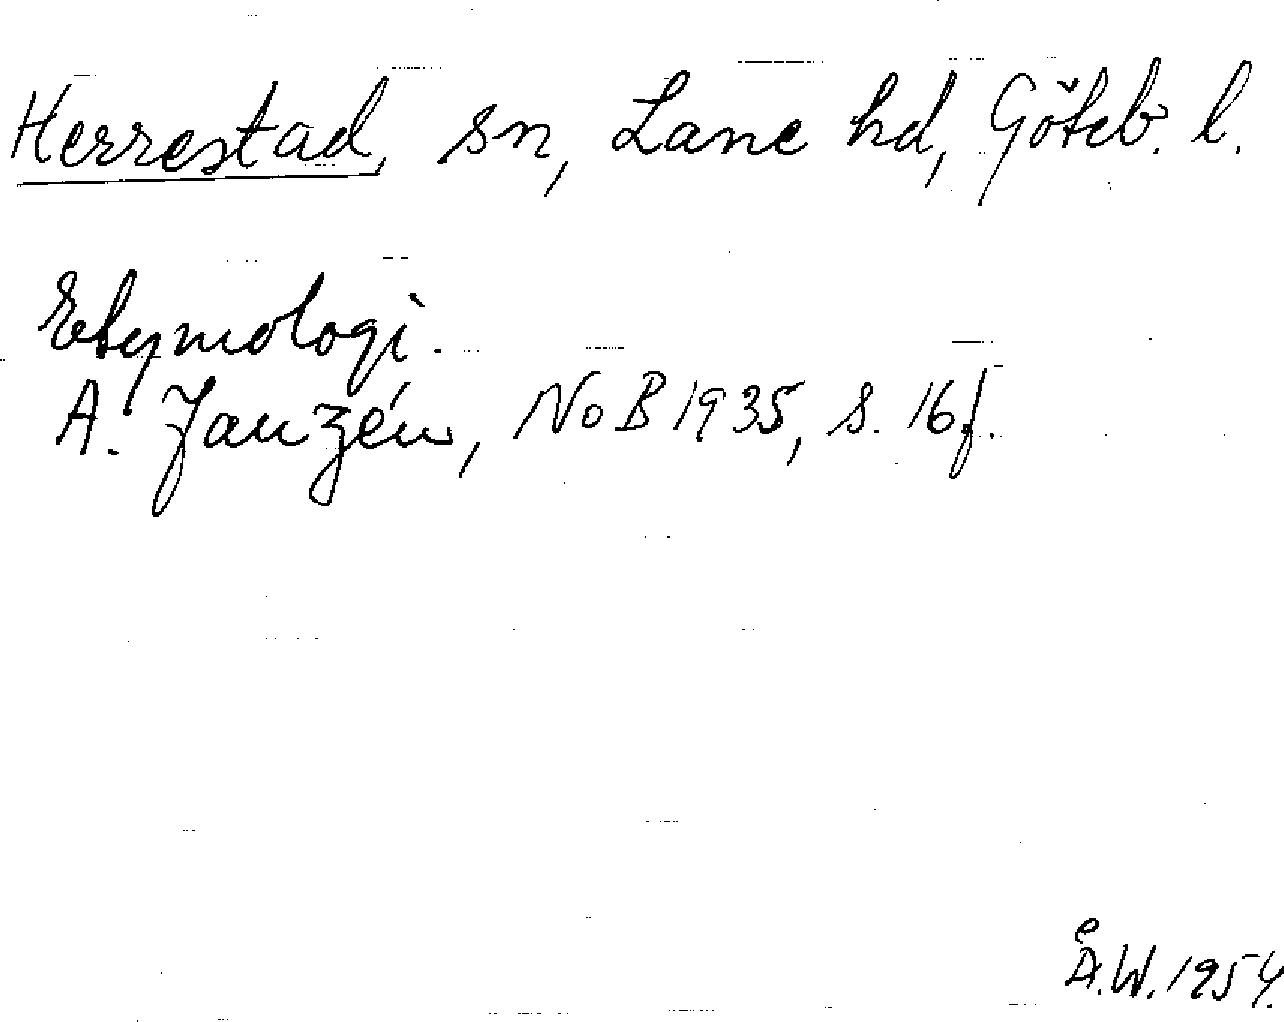 Herrestad, sn, Lane hd, Göteb. l.
Etymologi.
A. Janzén, NoB 1935, s. 16f.
Å.W. 1954.